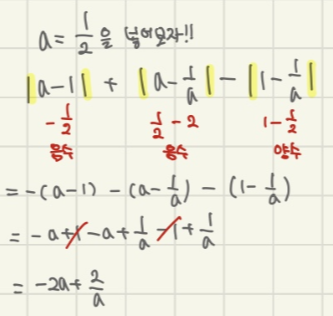 a = 1/2 을 넣어보자!!
|a-1| + |a-1/a| - |1-1/a|
-1/2 1/2-2 1-1/2
음수 음수 양수
= -(a-1) - (a-1/a) - (1-1/a)
= -a+1-a+1/a-1+1/a
= -2a+2/a